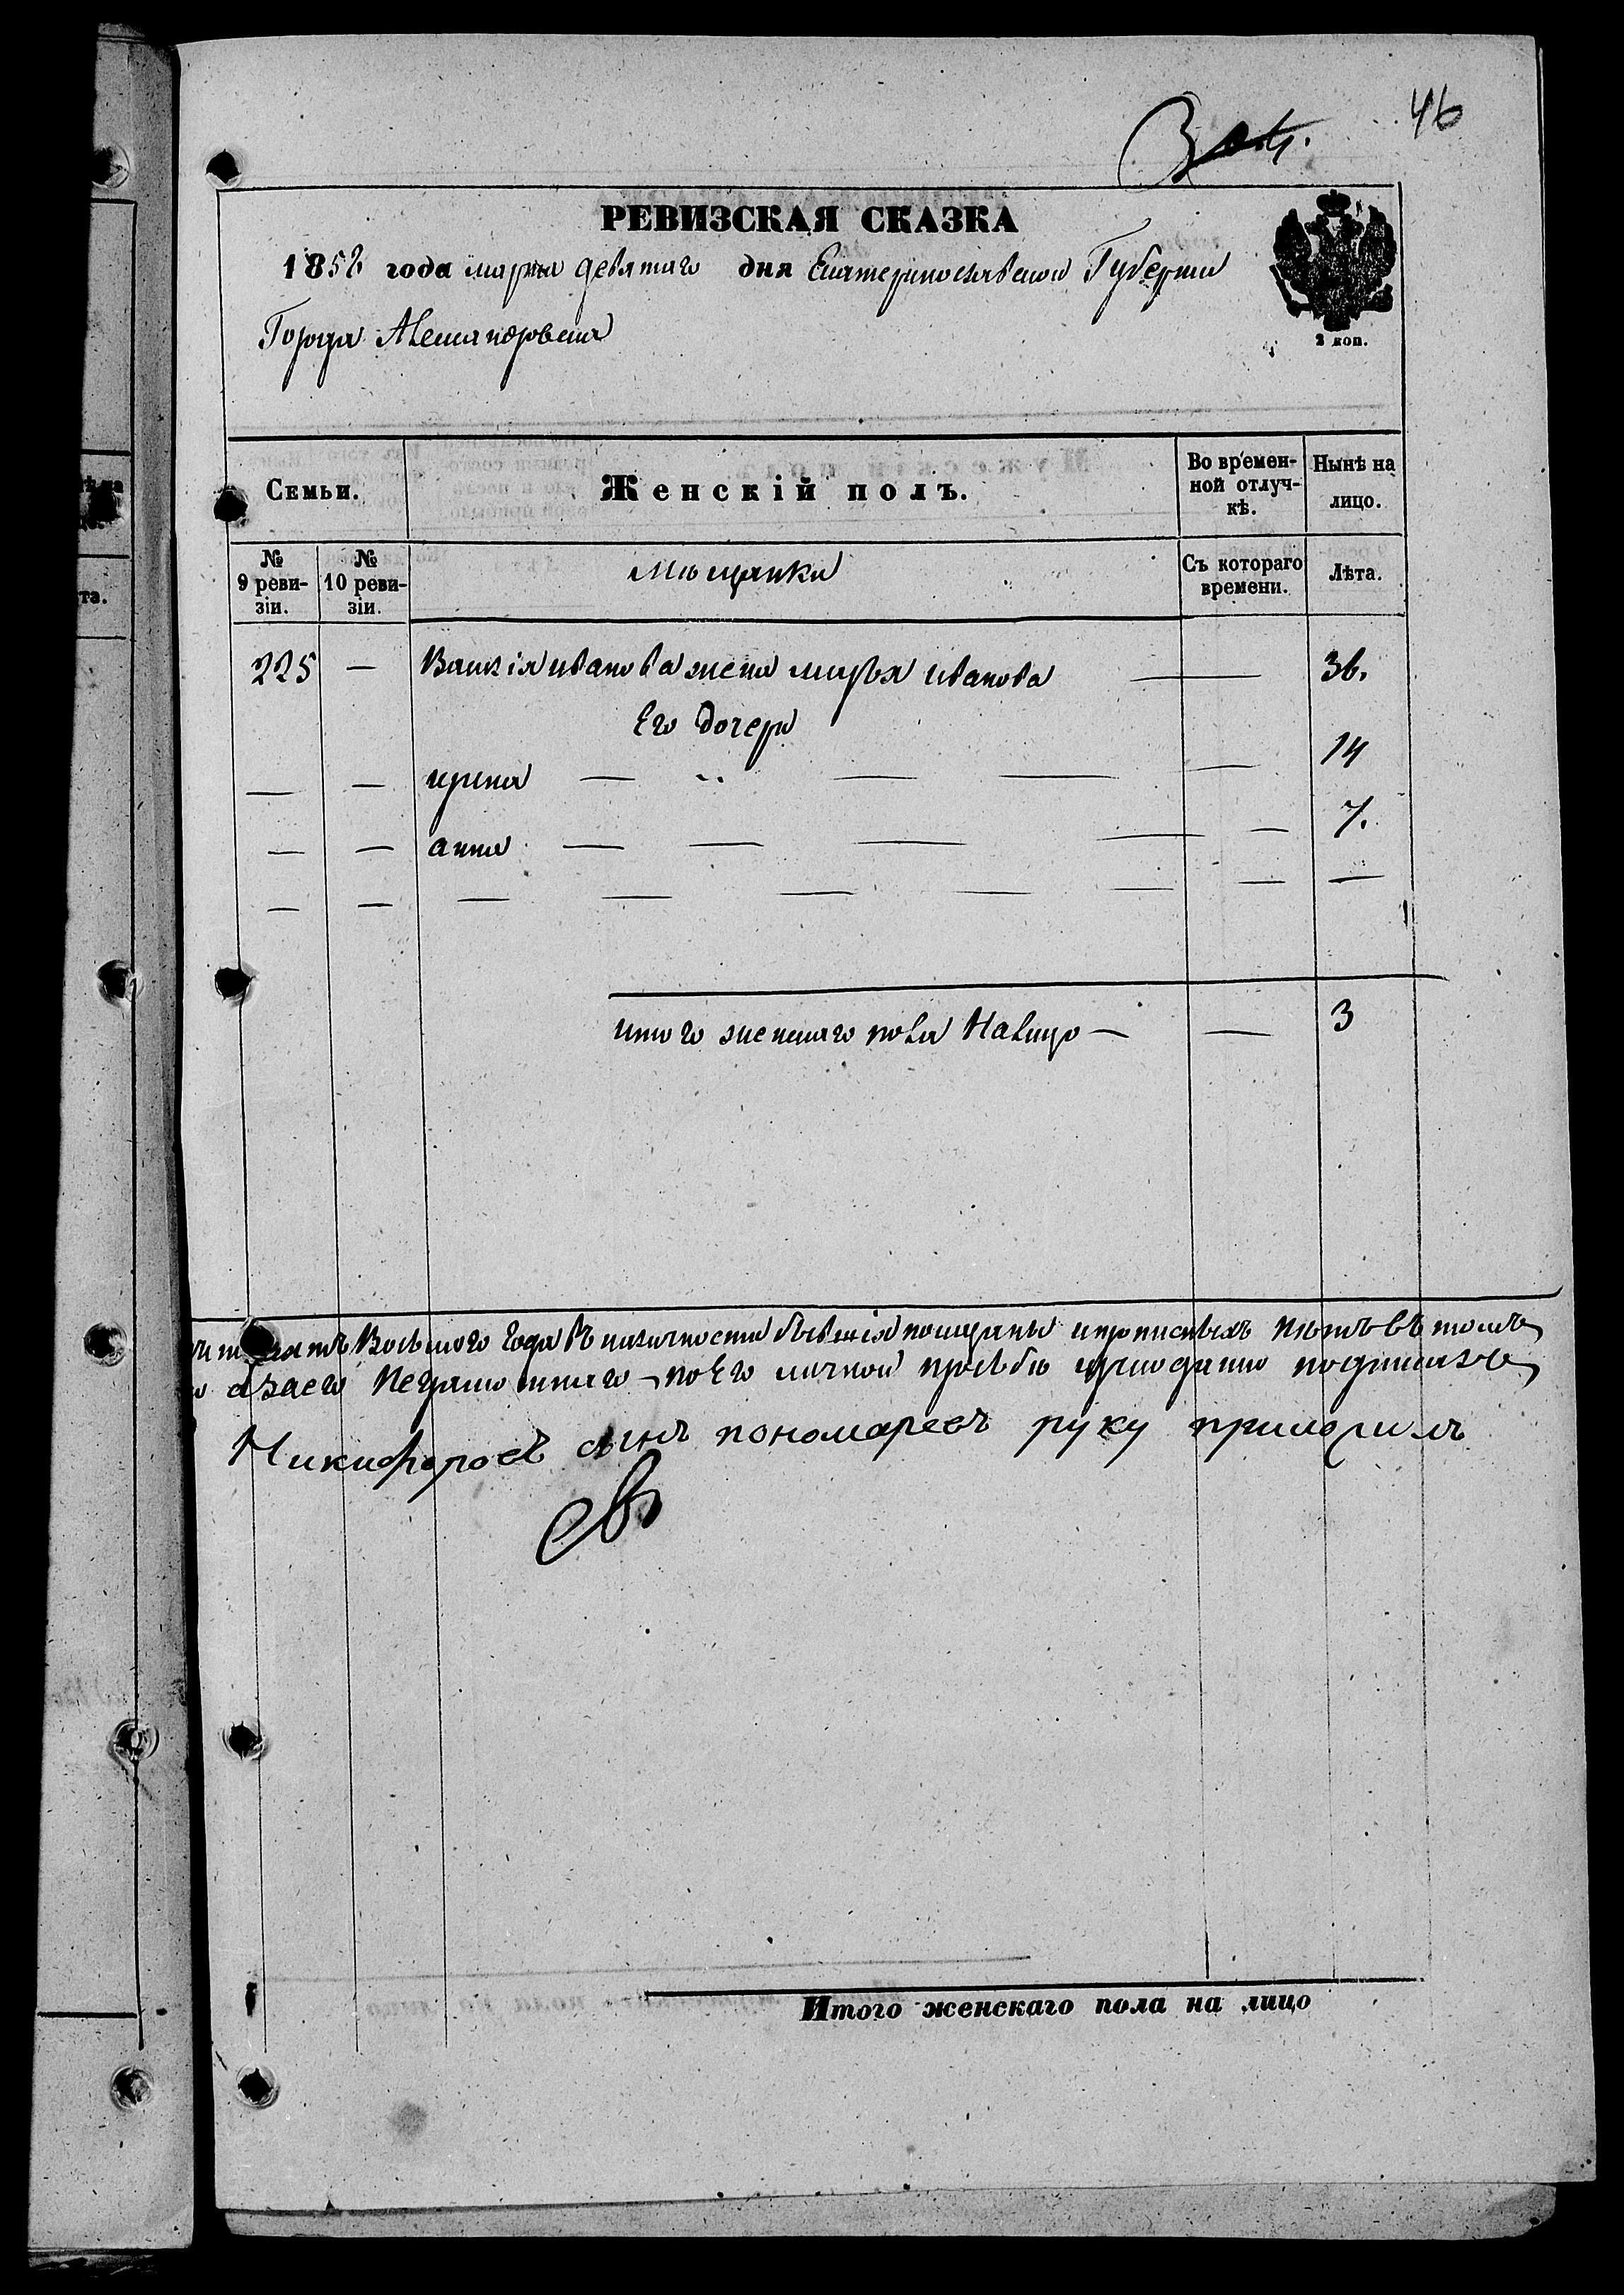 46
РЕВИЗСКАЯ СКАЗКА
1858 года марта девятаго дня Екатеринославской Губерніи
Города Александровска
2 коп.
Семьи. Женскій полъ. Во времен-ной отлуч-кѣ. Нынѣ на лицо.
№ 9 реви-зіи. № 10 реви-зіи. Мѣщанки Съ котораго времени. Лѣта.
225 — иванова жена марья иванова — 36.
Его дочери
— — ирина — — — — 14
— — анна — — — — — 7.
— — — — — — — — —
итого женскаго пола Налицо — — 3
Восьмого года въ наличности и прописныхъ нѣтъ въ томъ
неграмотнаго по Его личной прозьбѣ
Никифоровъ сынъ пономаревъ руку приложилъ
Итого женскаго пола на лицо